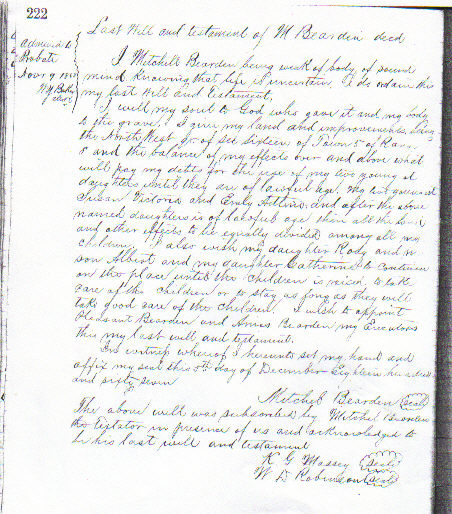 222
Last Will and testament of M Bearden decd
Admited to
Probate
Nov 9 18
I Mitchell Bearden being weak of body of sound
mind Knowing that life is uncertain I do ordain this
my last Will and testament,
I will my soul to God who gave it and my body
to the grave. I give my land and improvements being
the North West qr of Sec Sixteen of Town 5 of Rang
8 and the balance of my effects over and above what
will pay my debts for the use of my two young st
daughters until they are of lawful age. My two youngest
Susan Victoria and Emily and after the above
named daughters is of lawful age then all the land
and other effects to be equally divided among all my
children. I also wish my daughter Kody and my
son Albert and my daughter Catherine to continue
on the place until the children is raised to take
care of the children or to stay as long as they will
take good care of the children. I wish to appoint
Pleasant Bearden and Bearden my Executors
this my last will and testament.
In witness whereof I hereunto set my hand and
affix my seal this day of December Eighteen hundred
and sixty seven
Mitchel Bearden (seal)
The above will was subscribed by Mitchel Bearden
the testator in presence of us and acknowledged to
be his last will and testament
K G Massey (seal)
W D Robinson (seal)